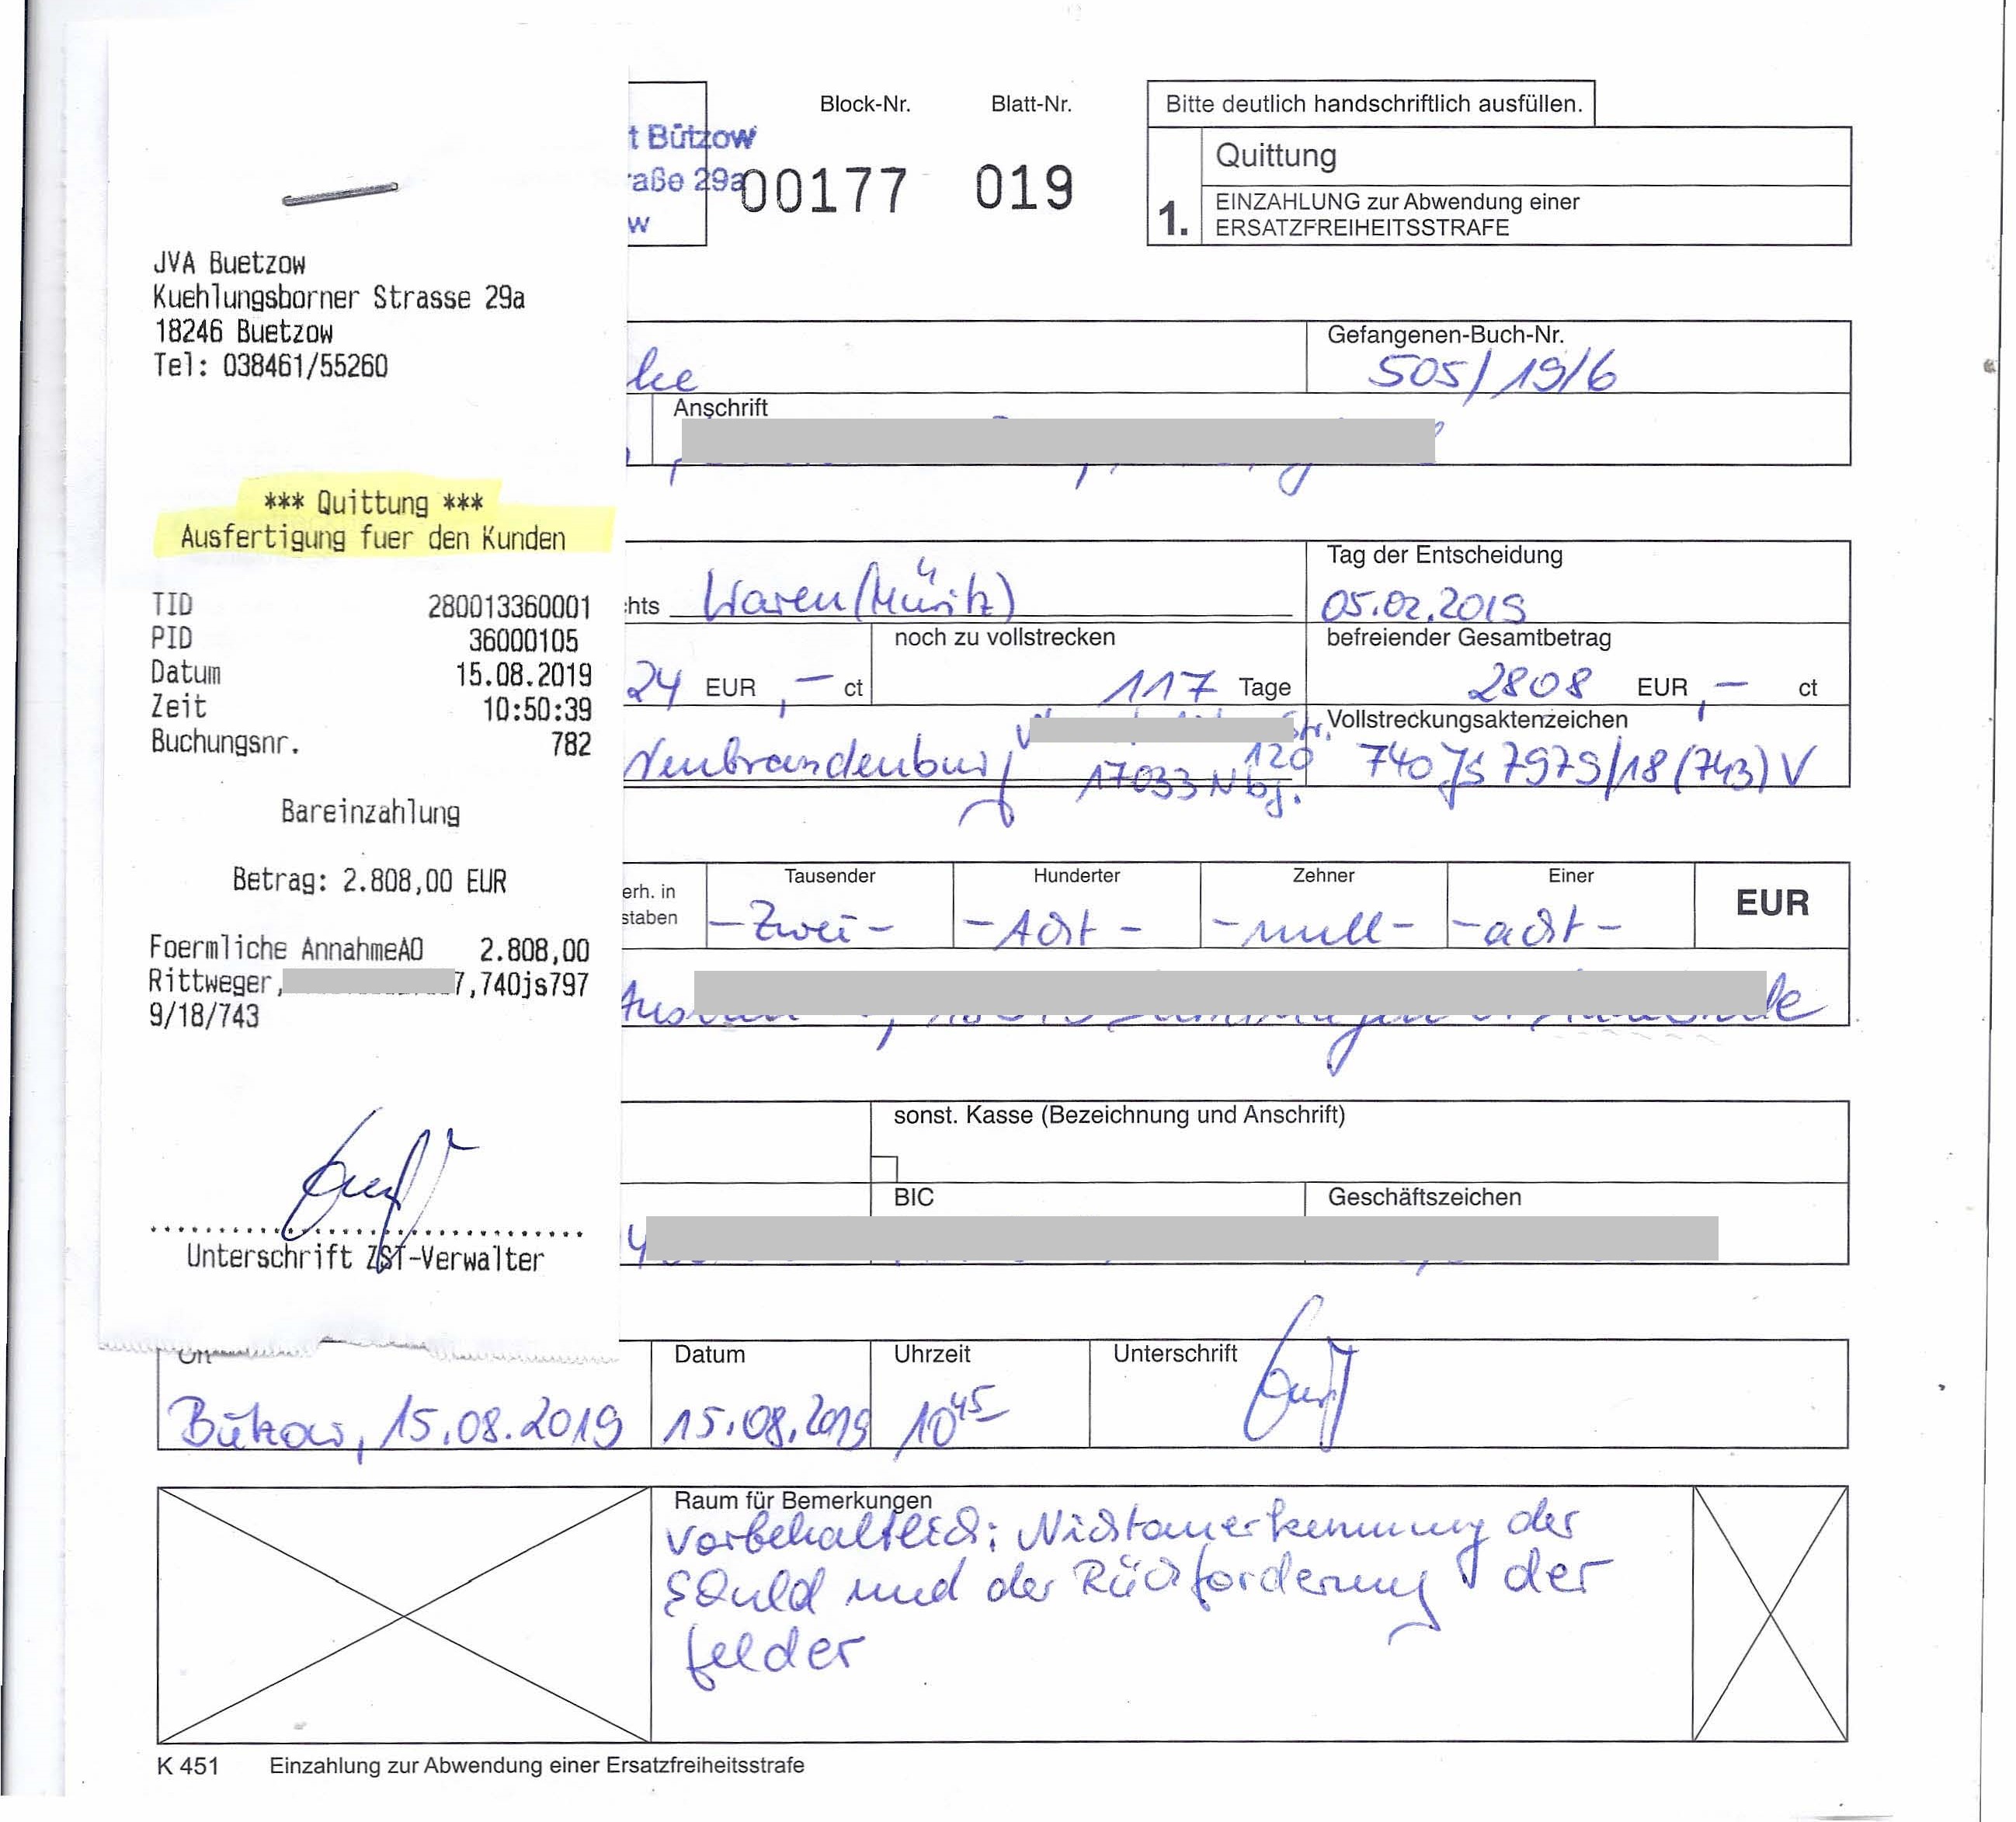 Block-Nr. Blatt-Nr. Bitte deutlich handschriftlich ausfüllen.
t Bützow
aße 29a
w
00177 019
Quittung
1. EINZAHLUNG zur Abwendung einer
ERSATZFREIHEITSSTRAFE
JVA Buetzow
Kuehlungsborner Strasse 29a
18246 Buetzow
Tel: 038461/55260
*** Quittung ***
Ausfertigung fuer den Kunden
TID 280013360001
PID 36000105
Datum 15.08.2019
Zeit 10:50:39
Buchungsnr. 782
Bareinzahlung
Betrag: 2.808,00 EUR
Foermliche AnnahmeAO 2.808,00
Rittweger, 7,740js797
9/18/743
Unterschrift ZST-Verwalter
Gefangenen-Buch-Nr.
ke 505/19/6
Anschrift
Tag der Entscheidung
hts Waren (Müritz) 05.02.2019
noch zu vollstrecken befreiender Gesamtbetrag
24 EUR ,— ct 117 Tage 2808 EUR ,— ct
Str. Vollstreckungsaktenzeichen
Neubrandenburg 120 740 Js 7979/18 (743) V
17033 Nbg.
erh. in Tausender Hunderter Zehner Einer EUR
staben - Zwei - - Acht - - null - - acht -
sonst. Kasse (Bezeichnung und Anschrift)
BIC Geschäftszeichen
4
Ort Datum Uhrzeit Unterschrift
Bützow, 15.08.2019 15.08.2019 10 45
Raum für Bemerkungen
vorbehaltlich: Nichtanerkennung der
Schuld und der Rückforderung der
Gelder
K 451 Einzahlung zur Abwendung einer Ersatzfreiheitsstrafe